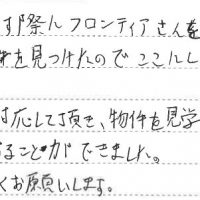 す際にフロンティアさんを
件を見つけたのでここにし
対応して頂き、物件を見学
ることができました。
くお願いします。